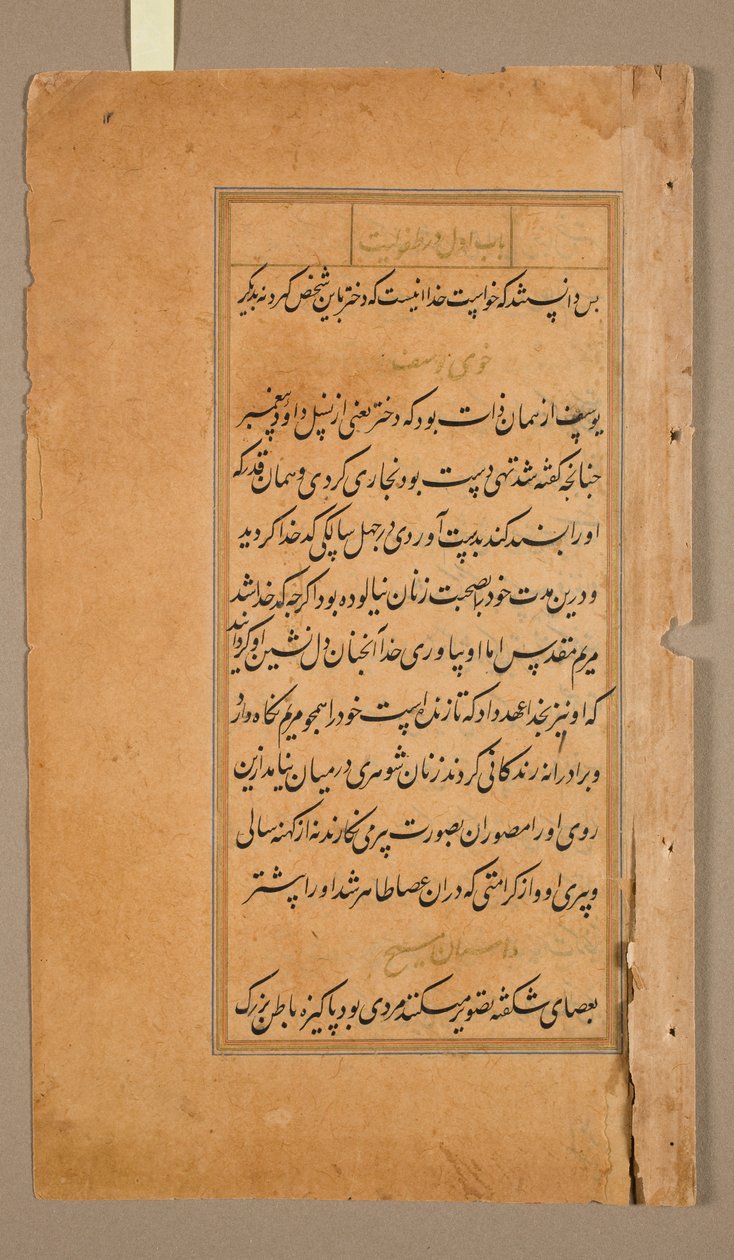 باب اول در طفولیت
بس دانستند که خواست خدا اینست که دختر باین شخص کرد نه بدیکر
خوی یوسف
یوسف از همان ذات بود که دختر یعنی از نسل داود پیغمبر
جنانجه کفته شد تهی دست بود نجاری کردی و همان قدر که
او را بسند کند بدست آوردی در جهل سالکی کد خدا کردید
و درین مدت خود بصحبت زنان نیالوده بود اکرجه کد خدا شد
مریم مقدس اما او بیاوری خدا آنجنان دل نشین او کردانید
که او نیز بخدا عهد داد که تا زنده است خود را همجو مریم نکاه دارد
و برادرانه زندکانی کردند زنان شوهری در میان نیامد ازین
روی او را مصوران بصورت پر می نکارند نه از کهنه سالی
و پیری او و از کرامتی که در ان عصا ظاهر شد او را بیشتر
داستان مسیح
بعصای شکفته تصویر میکنند مردی بود پاکیزه باطن بزرک